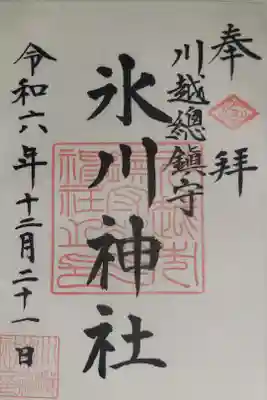 奉拝
川越總鎮守
氷川神社
令和六年十二月二十一日